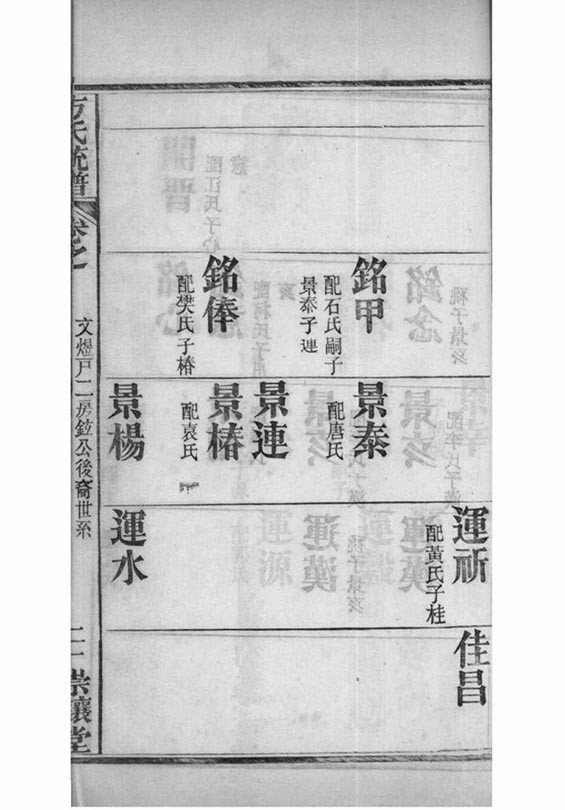 銘甲
配石氏嗣子
景泰子連
銘俸
配樊氏子椿
景泰
配唐氏
景連
景椿
配袁氏
景楊
運祈
配黃氏子桂
運水
佳昌
方氏統譜
卷之
文煜戶二房公後裔世系
崇讓堂